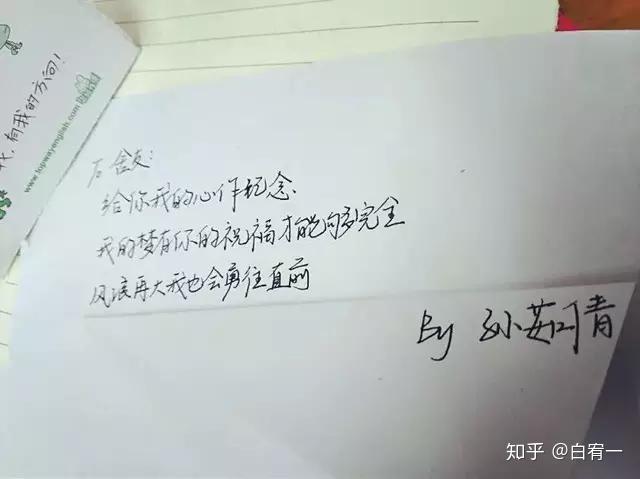 我,有我的方向!
www.topwayenglish.com
石舍友:
给你我的心作纪念、
我的梦有你的祝福才能够完全
风浪再大我也会勇往直前
By 孙茹青
知乎 @白宥一